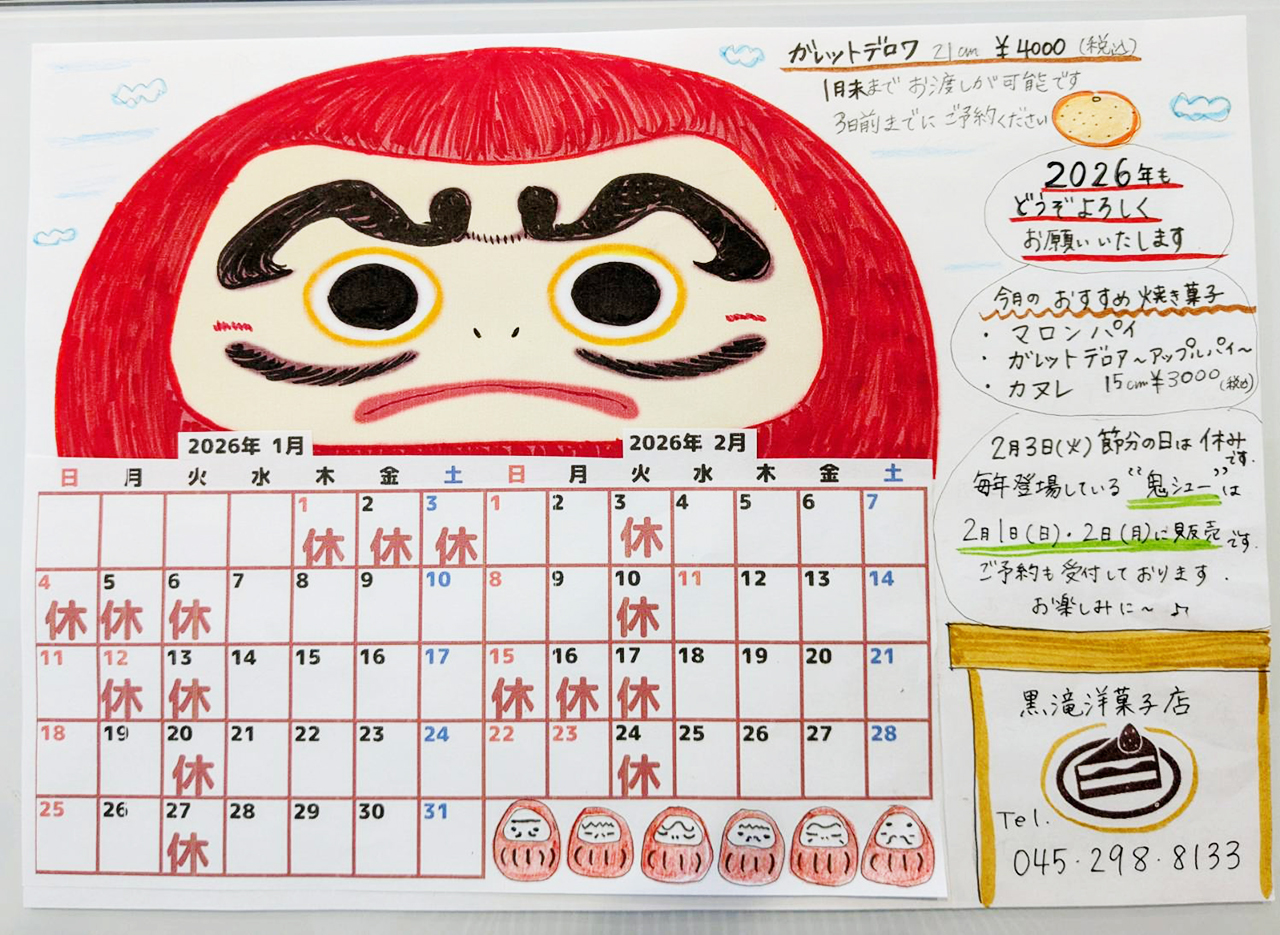 ガレットデロワ 21cm ¥4000 (税込)
1月末まで お渡しが可能です
3日前までに ご予約ください
2026年も
どうぞよろしく
お願いいたします
今月の おすすめ 焼き菓子
・ マロンパイ
・ ガレットデロア〜アップルパイ〜
・ カヌレ 15cm ¥3000 (税込)
2月3日(火) 節分の日は 休み
です.
毎年登場している "鬼シュー" は
2月1日(日)・2日(月)に販売です.
ご予約も受付しております.
お楽しみに〜 ♪
2026年 1月
日 月 火 水 木 金 土
1 2 3
休 休 休
4 5 6 7 8 9 10
休 休 休
11 12 13 14 15 16 17
休 休
18 19 20 21 22 23 24
休
25 26 27 28 29 30 31
休
2026年 2月
日 月 火 水 木 金 土
1 2 3 4 5 6 7
休
8 9 10 11 12 13 14
休
15 16 17 18 19 20 21
休 休 休
22 23 24 25 26 27 28
休
黒滝洋菓子店
Tel.
045・298・8133